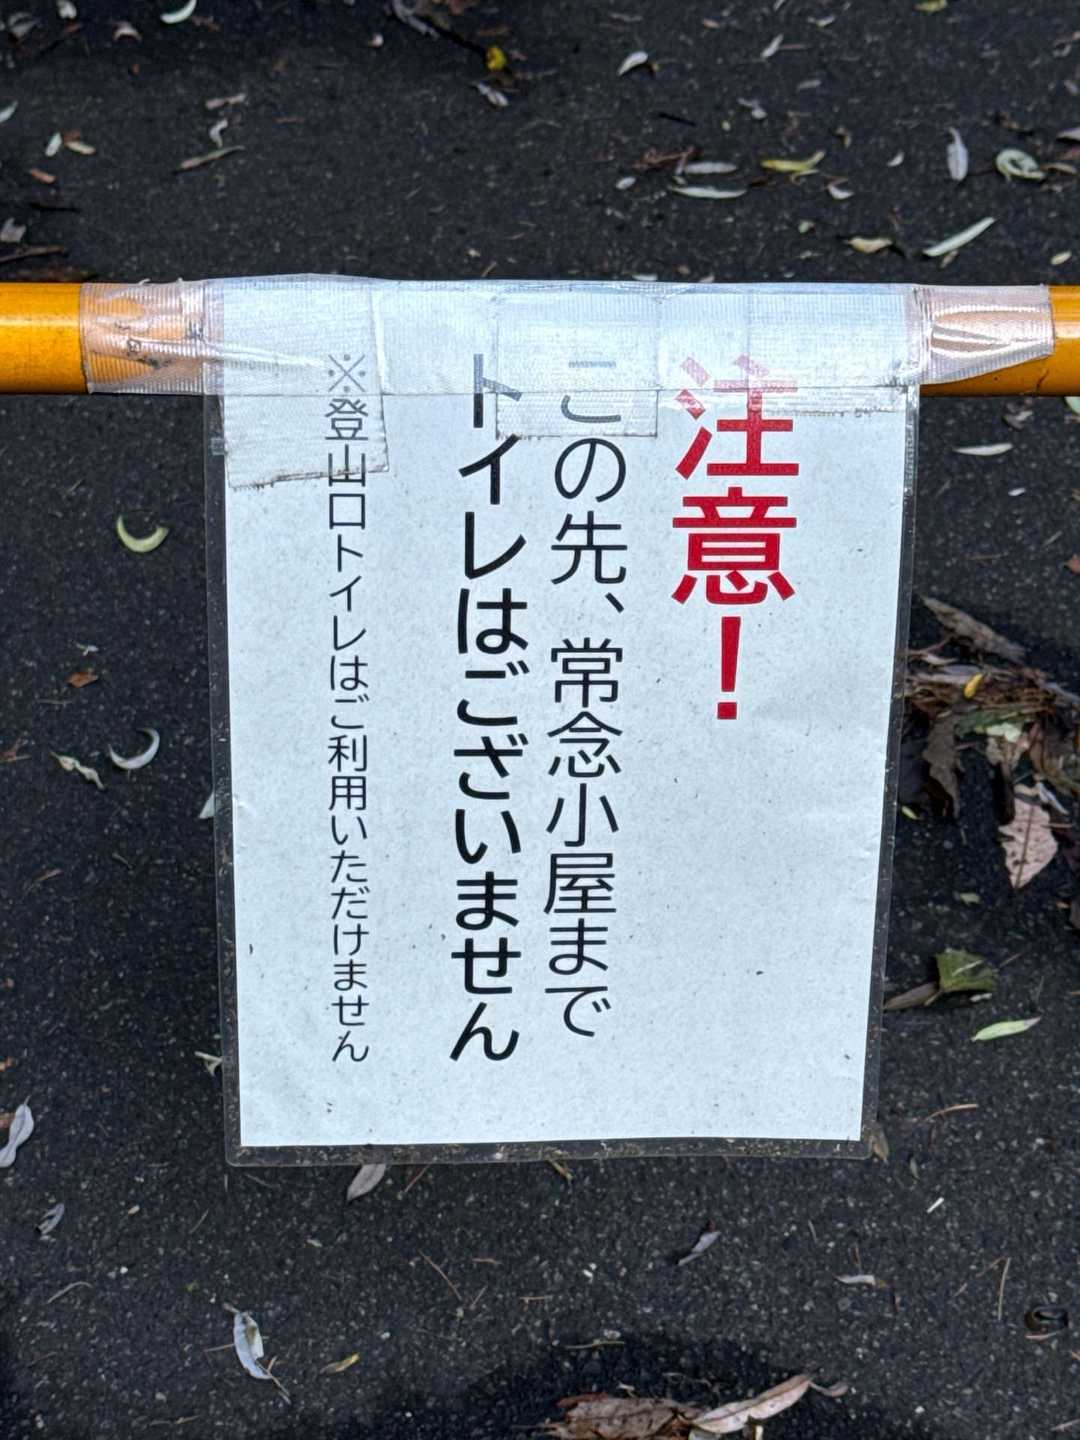 注意！
この先、常念小屋まで
トイレはございません
※登山口トイレはご利用いただけません